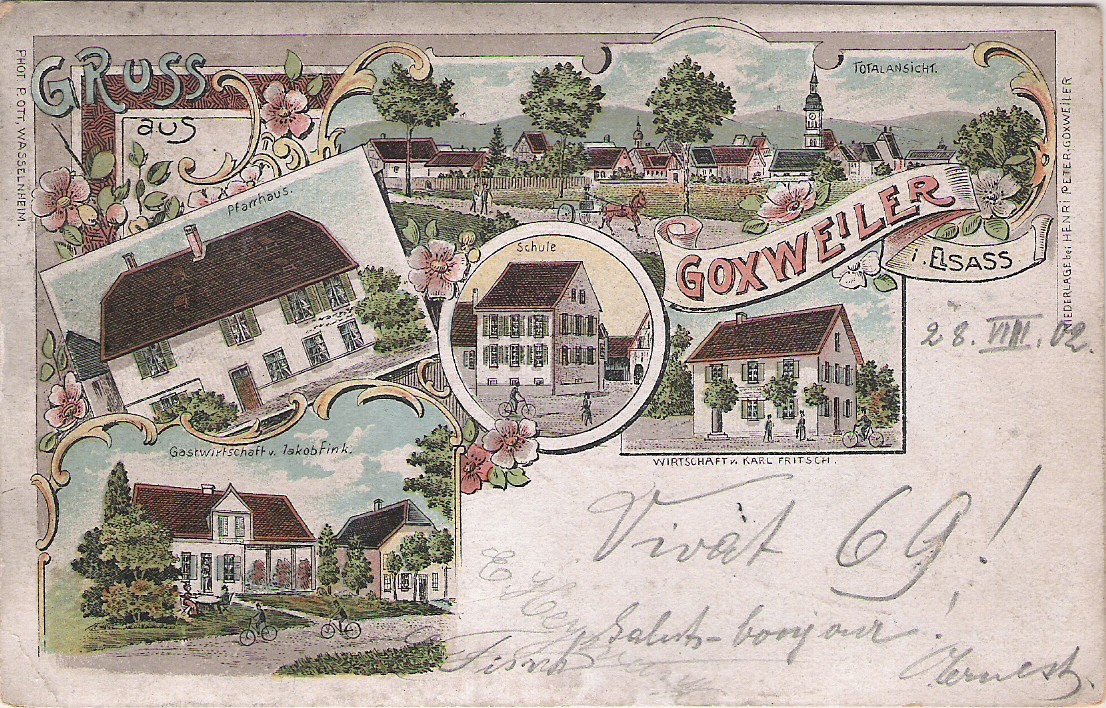 GRUSS
aus
GOXWEILER
i. ELSASS
TOTALANSICHT.
Pfarrhaus.
Schule
WIRTSCHAFT v. KARL FRITSCH.
Gastwirtschaft v. Jakob Fink.
PHOT. P. OTT. WASSELNHEIM.
NIEDERLAGE bei HENRI PETER, GOXWEILER
28. VIII. 02.
Vivat 69!
Saluts-bonjour!
Hernest.